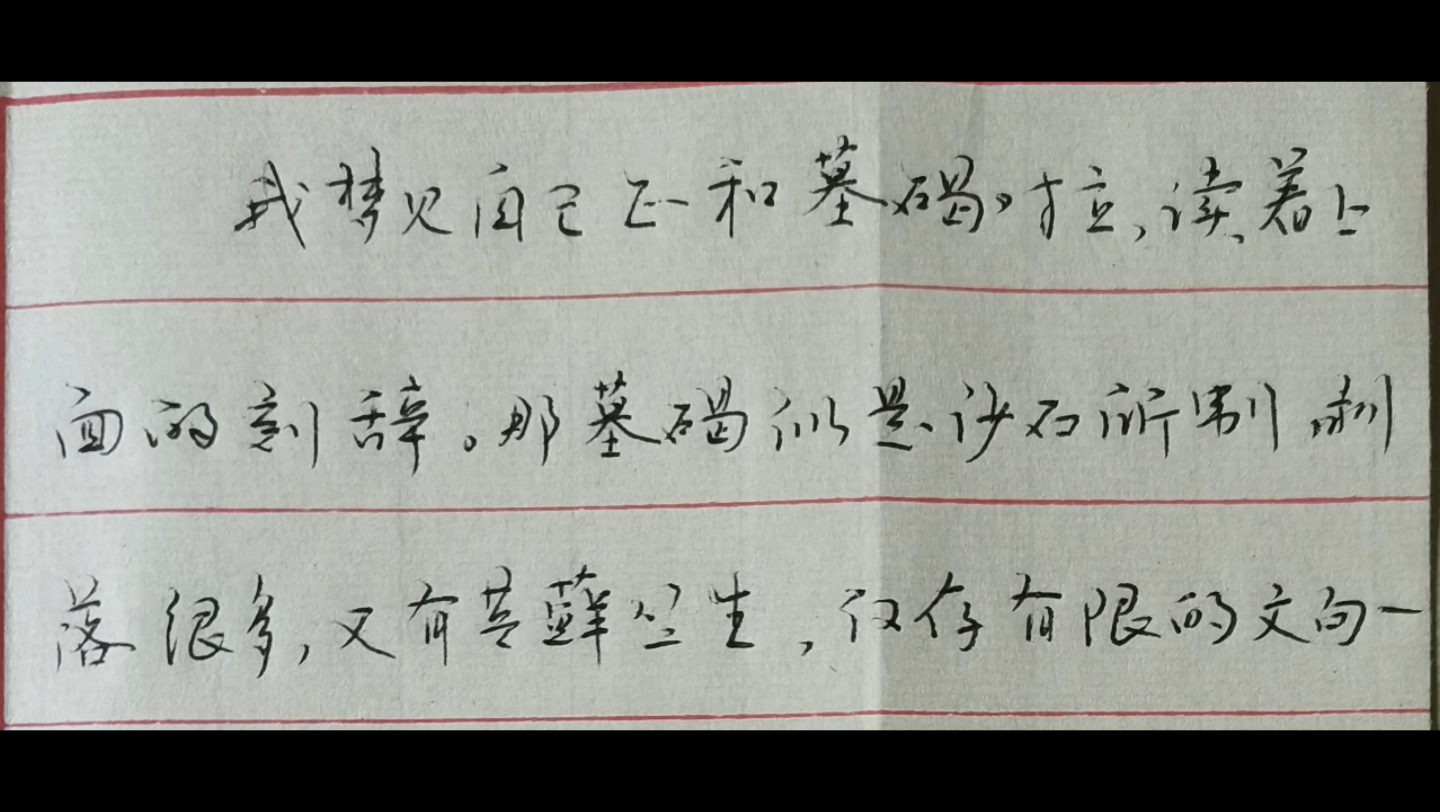 我梦见自己正和墓碣对立,读着上
面的刻辞。那墓碣似是沙石所制,剥
落很多,又有苔藓丛生,仅存有限的文句一